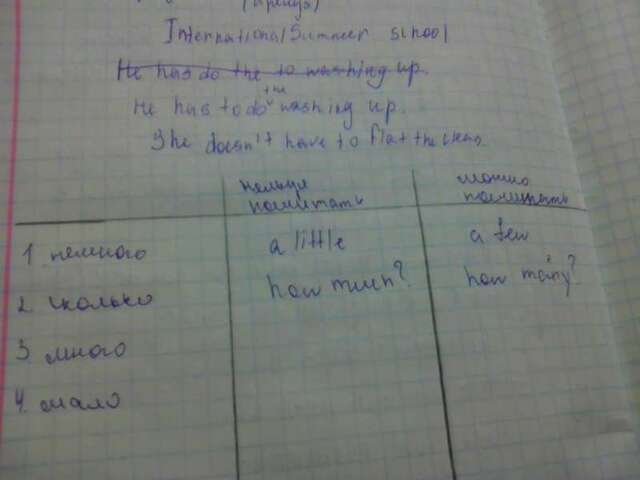 International Summer school
He has do the to washing up.
the
He has to do washing up.
She doesn't have to
нельзя можно
посчитать посчитать
1 немного a little a few
2 сколько how much? how many?
3 много
4. мало